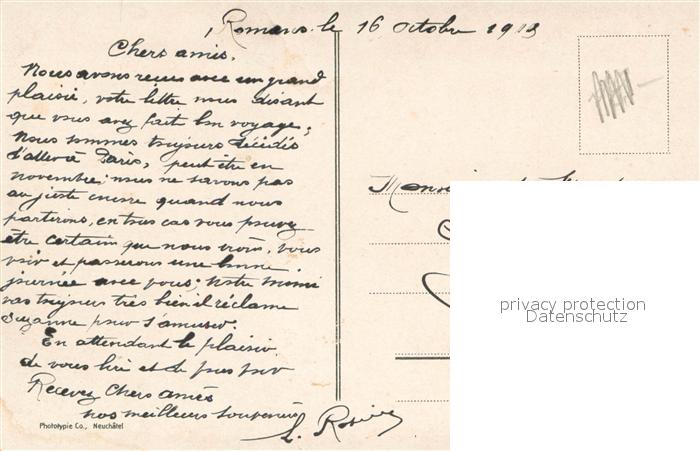 Romans le 16 Octobre 1913
Chers amis.
Nous avons reçus avec un grand
plaisir, votre lettre nous disant
que vous avez fait bon voyage;
Nous sommes toujours décidés
d'aller à Paris, peut être en
novembre; nous ne savons pas
au juste encore quand nous
partirons, en tous cas vous pouvez
être certain que nous irons, vous
voir et passerons une bonne
journée avec vous; notre mimi
vas toujours très bien il réclame
Suzanne pour s'amuser.
En attendant le plaisir
de vous lire et de
Recevez Chers amis
nos meilleurs souvenirs
L.
Phototypie Co., Neuchâtel
privacy protection
Datenschutz